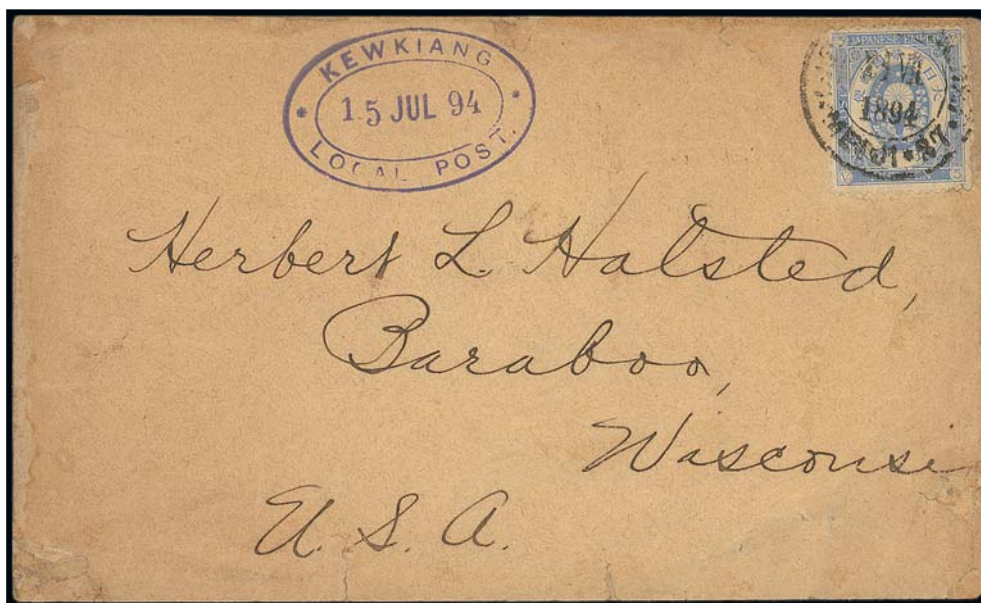 KEWKIANG
15 JUL 94
LOCAL POST.
JAPANESE
1894
MEIJI 27
Herbert L. Halsted,
Baraboo,
Wisconsi
U. S. A.